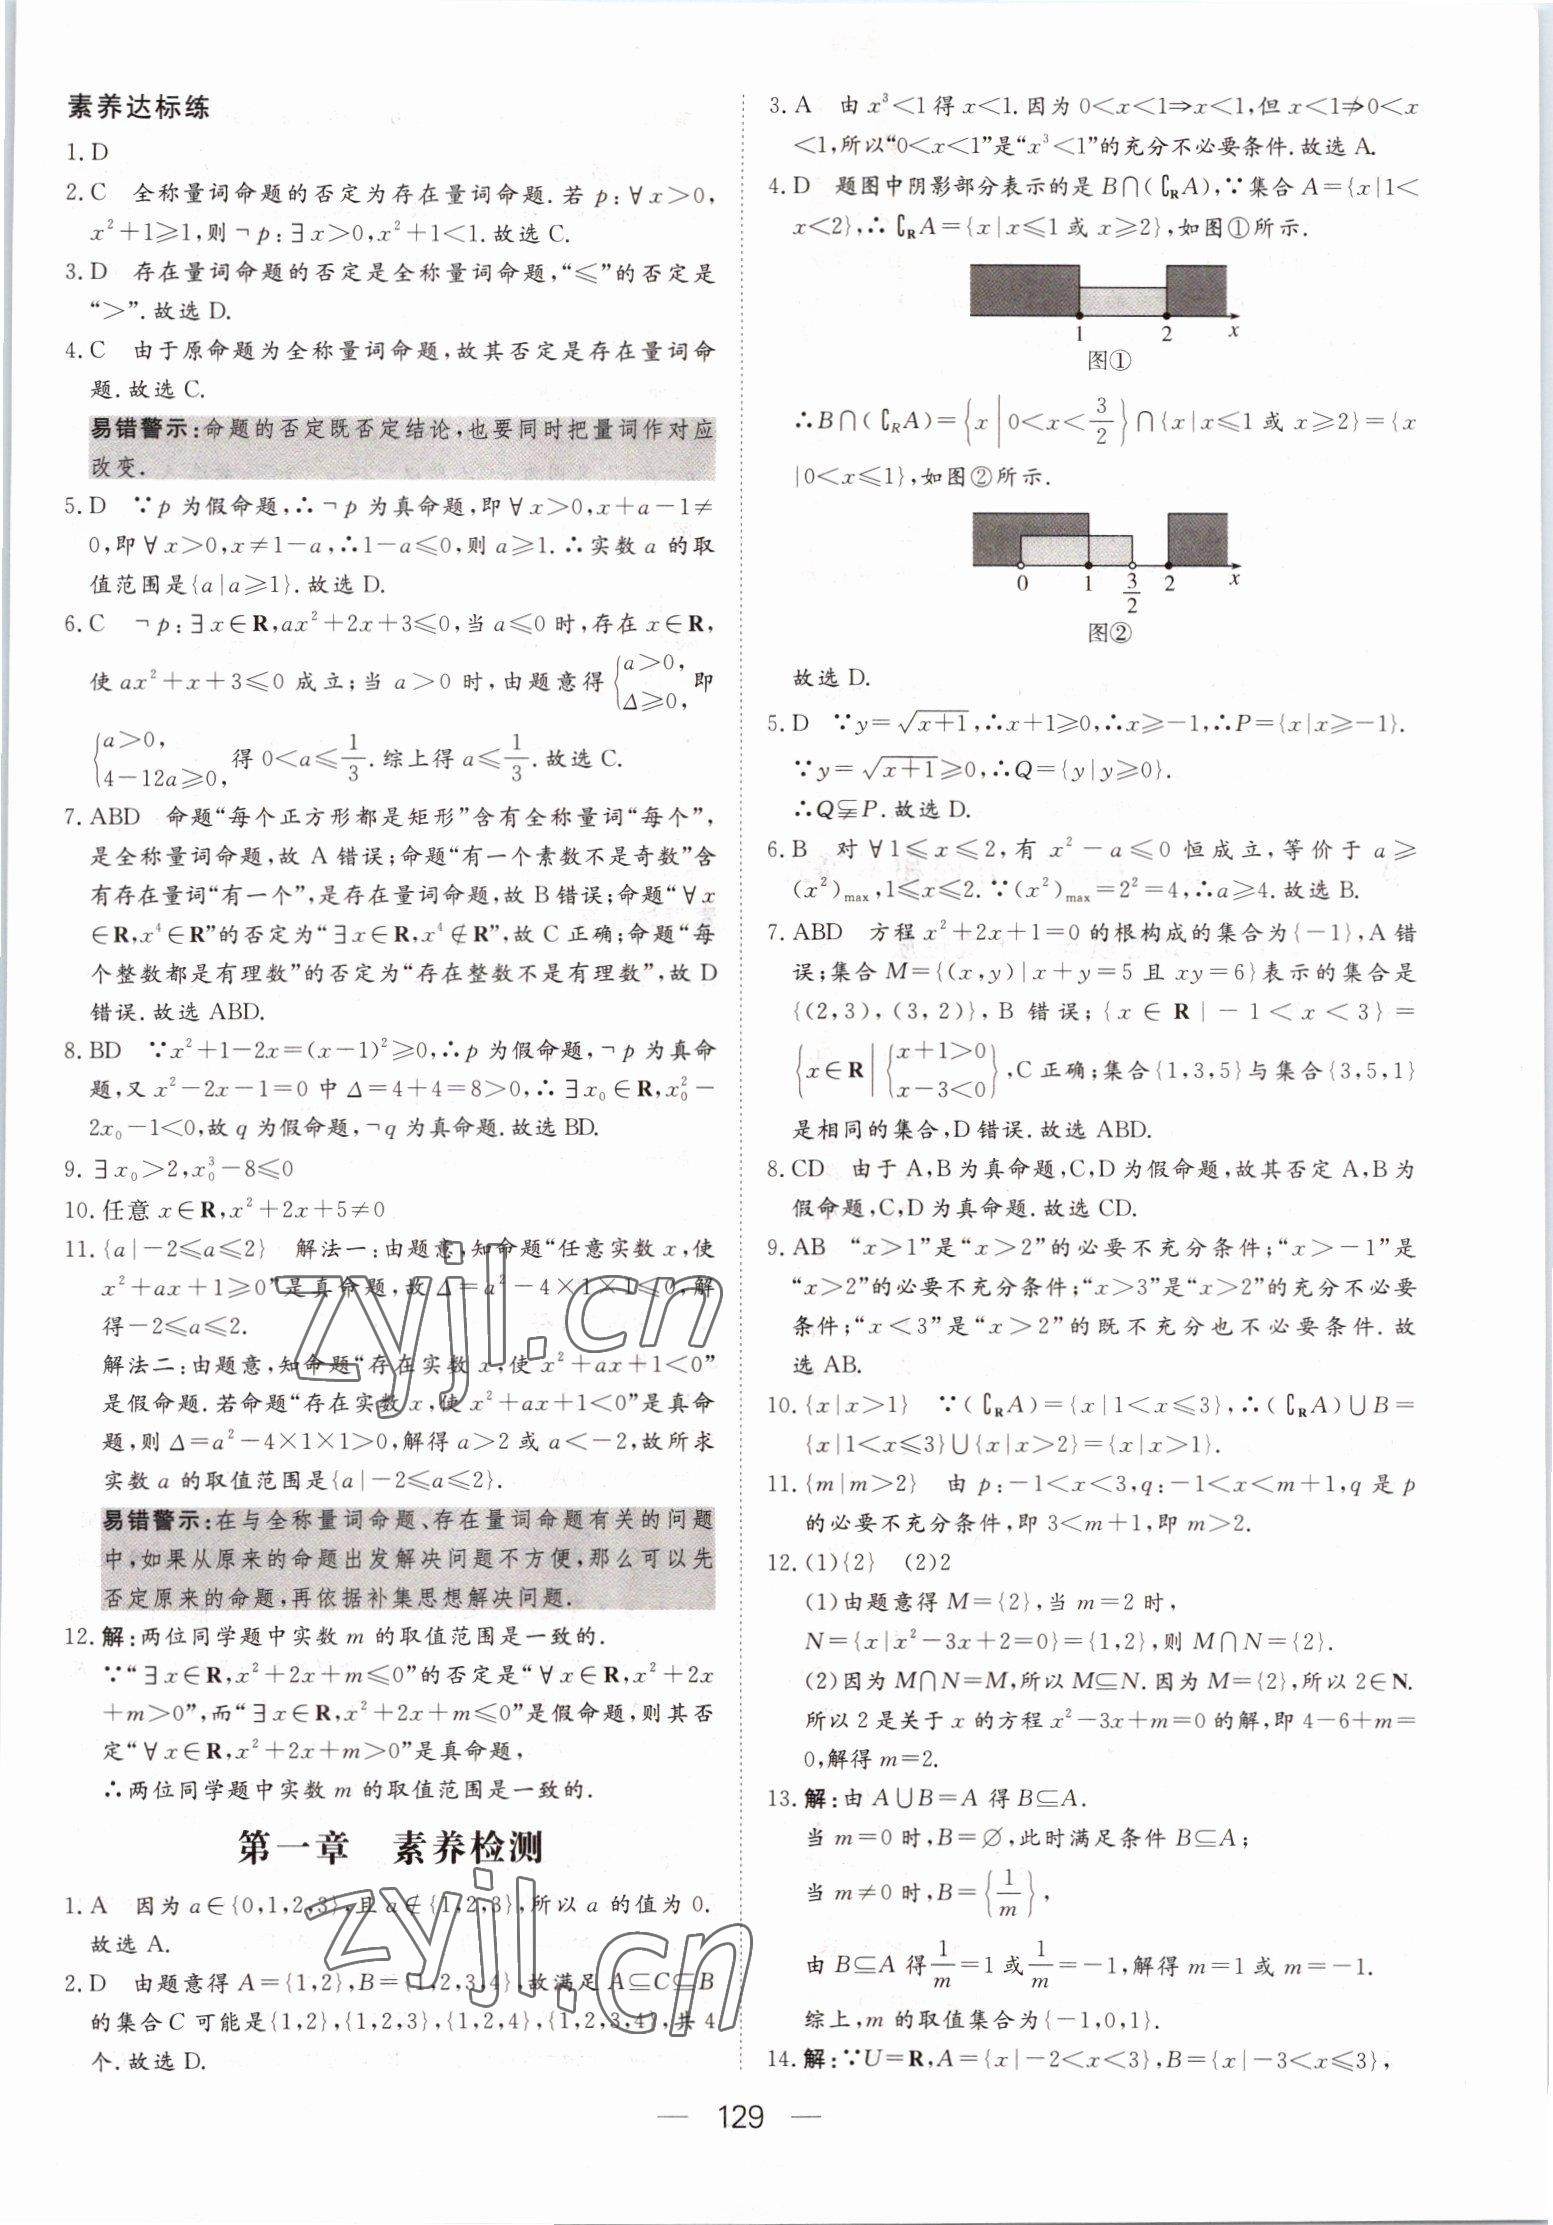 素养达标练
1. D
2. C　全称量词命题的否定为存在量词命题.若 p:∀x>0,
x²+1≥1,则¬p:∃x>0,x²+1<1.故选 C.
3. D　存在量词命题的否定是全称量词命题,“≤”的否定是
“>”.故选 D.
4. C　由于原命题为全称量词命题,故其否定是存在量词命
题.故选 C.
易错警示:命题的否定既否定结论,也要同时把量词作对应
改变.
5. D　∵p 为假命题,∴¬p 为真命题,即∀x>0,x+a-1≠
0,即∀x>0,x≠1-a,∴1-a≤0,则 a≥1.∴实数 a 的取
值范围是{a|a≥1}.故选 D.
6. C　¬p:∃x∈R,ax²+2x+3≤0,当 a≤0 时,存在 x∈R,
使 ax²+x+3≤0 成立;当 a>0 时,由题意得{a>0, Δ≥0,即
{a>0, 4-12a≥0,得 0<a≤1/3.综上得 a≤1/3.故选 C.
7. ABD　命题“每个正方形都是矩形”含有全称量词“每个”,
是全称量词命题,故 A 错误;命题“有一个素数不是奇数”含
有存在量词“有一个”,是存在量词命题,故 B 错误;命题“∀x
∈R,x⁴∈R”的否定为“∃x∈R,x⁴∉R”,故 C 正确;命题“每
个整数都是有理数”的否定为“存在整数不是有理数”,故 D
错误.故选 ABD.
8. BD　∵x²+1-2x=(x-1)²≥0,∴p 为假命题,¬p 为真命
题,又 x²-2x-1=0 中 Δ=4+4=8>0,∴∃x₀∈R,x₀²-
2x₀-1<0,故 q 为假命题,¬q 为真命题.故选 BD.
9. ∃x₀>2,x₀³-8≤0
10. 任意 x∈R,x²+2x+5≠0
11. {a|-2≤a≤2}　解法一:由题意,知命题“任意实数 x,使
x²+ax+1≥0”是真命题,故 Δ=a²-4×1×1≤0,解
得-2≤a≤2.
解法二:由题意,知命题“存在实数 x,使 x²+ax+1<0”
是假命题.若命题“存在实数 x,使 x²+ax+1<0”是真命
题,则 Δ=a²-4×1×1>0,解得 a>2 或 a<-2,故所求
实数 a 的取值范围是{a|-2≤a≤2}.
易错警示:在与全称量词命题、存在量词命题有关的问题
中,如果从原来的命题出发解决问题不方便,那么可以先
否定原来的命题,再依据补集思想解决问题.
12. 解:两位同学题中实数 m 的取值范围是一致的.
∵“∃x∈R,x²+2x+m≤0”的否定是“∀x∈R,x²+2x
+m>0”,而“∃x∈R,x²+2x+m≤0”是假命题,则其否
定“∀x∈R,x²+2x+m>0”是真命题,
∴两位同学题中实数 m 的取值范围是一致的.
第一章　素养检测
1. A　因为 a∈{0,1,2,3},且 a∉{1,2,3},所以 a 的值为 0.
故选 A.
2. D　由题意得 A={1,2},B={1,2,3,4},故满足 A⊆C⊆B
的集合 C 可能是{1,2},{1,2,3},{1,2,4},{1,2,3,4},共 4
个.故选 D.
3. A　由 x³<1得 x<1.因为 0<x<1⇒x<1,但 x<1⇏0<x
<1,所以“0<x<1”是“x³<1”的充分不必要条件.故选 A.
4. D　题图中阴影部分表示的是 B∩(∁RA),∵集合 A={x|1<
x<2},∴∁RA={x|x≤1 或 x≥2},如图①所示.
1 2 x
图①
∴B∩(∁RA)={x|0<x<3/2}∩{x|x≤1 或 x≥2}={x
|0<x≤1},如图②所示.
0 1 3/2 2 x
图②
故选 D.
5. D　∵y=√(x+1),∴x+1≥0,∴x≥-1,∴P={x|x≥-1}.
∵y=√(x+1)≥0,∴Q={y|y≥0}.
∴Q⫋P.故选 D.
6. B　对∀1≤x≤2,有 x²-a≤0 恒成立,等价于 a≥
(x²)max,1≤x≤2.∵(x²)max=2²=4,∴a≥4.故选 B.
7. ABD　方程 x²+2x+1=0 的根构成的集合为{-1},A 错
误;集合 M={(x,y)|x+y=5 且 xy=6}表示的集合是
{(2,3),(3,2)},B 错误;{x∈R|-1<x<3}=
{x∈R|{x+1>0 x-3<0},C 正确;集合{1,3,5}与集合{3,5,1}
是相同的集合,D 错误.故选 ABD.
8. CD　由于 A,B 为真命题,C,D 为假命题,故其否定 A,B 为
假命题,C,D 为真命题.故选 CD.
9. AB　“x>1”是“x>2”的必要不充分条件;“x>-1”是
“x>2”的必要不充分条件;“x>3”是“x>2”的充分不必要
条件;“x<3”是“x>2”的既不充分也不必要条件.故
选 AB.
10. {x|x>1}　∵(∁RA)={x|1<x≤3},∴(∁RA)∪B=
{x|1<x≤3}∪{x|x>2}={x|x>1}.
11. {m|m>2}　由 p:-1<x<3,q:-1<x<m+1,q 是 p
的必要不充分条件,即 3<m+1,即 m>2.
12. (1){2}　(2)2
(1)由题意得 M={2},当 m=2 时,
N={x|x²-3x+2=0}={1,2},则 M∩N={2}.
(2)因为 M∩N=M,所以 M⊆N.因为 M={2},所以 2∈N.
所以 2 是关于 x 的方程 x²-3x+m=0 的解,即 4-6+m=
0,解得 m=2.
13. 解:由 A∪B=A 得 B⊆A.
当 m=0 时,B=∅,此时满足条件 B⊆A;
当 m≠0 时,B={1/m},
由 B⊆A 得 1/m=1 或 1/m=-1,解得 m=1 或 m=-1.
综上,m 的取值集合为{-1,0,1}.
14. 解:∵U=R,A={x|-2<x<3},B={x|-3<x≤3},
— 129 —
zyjl.cn
zyjl.cn